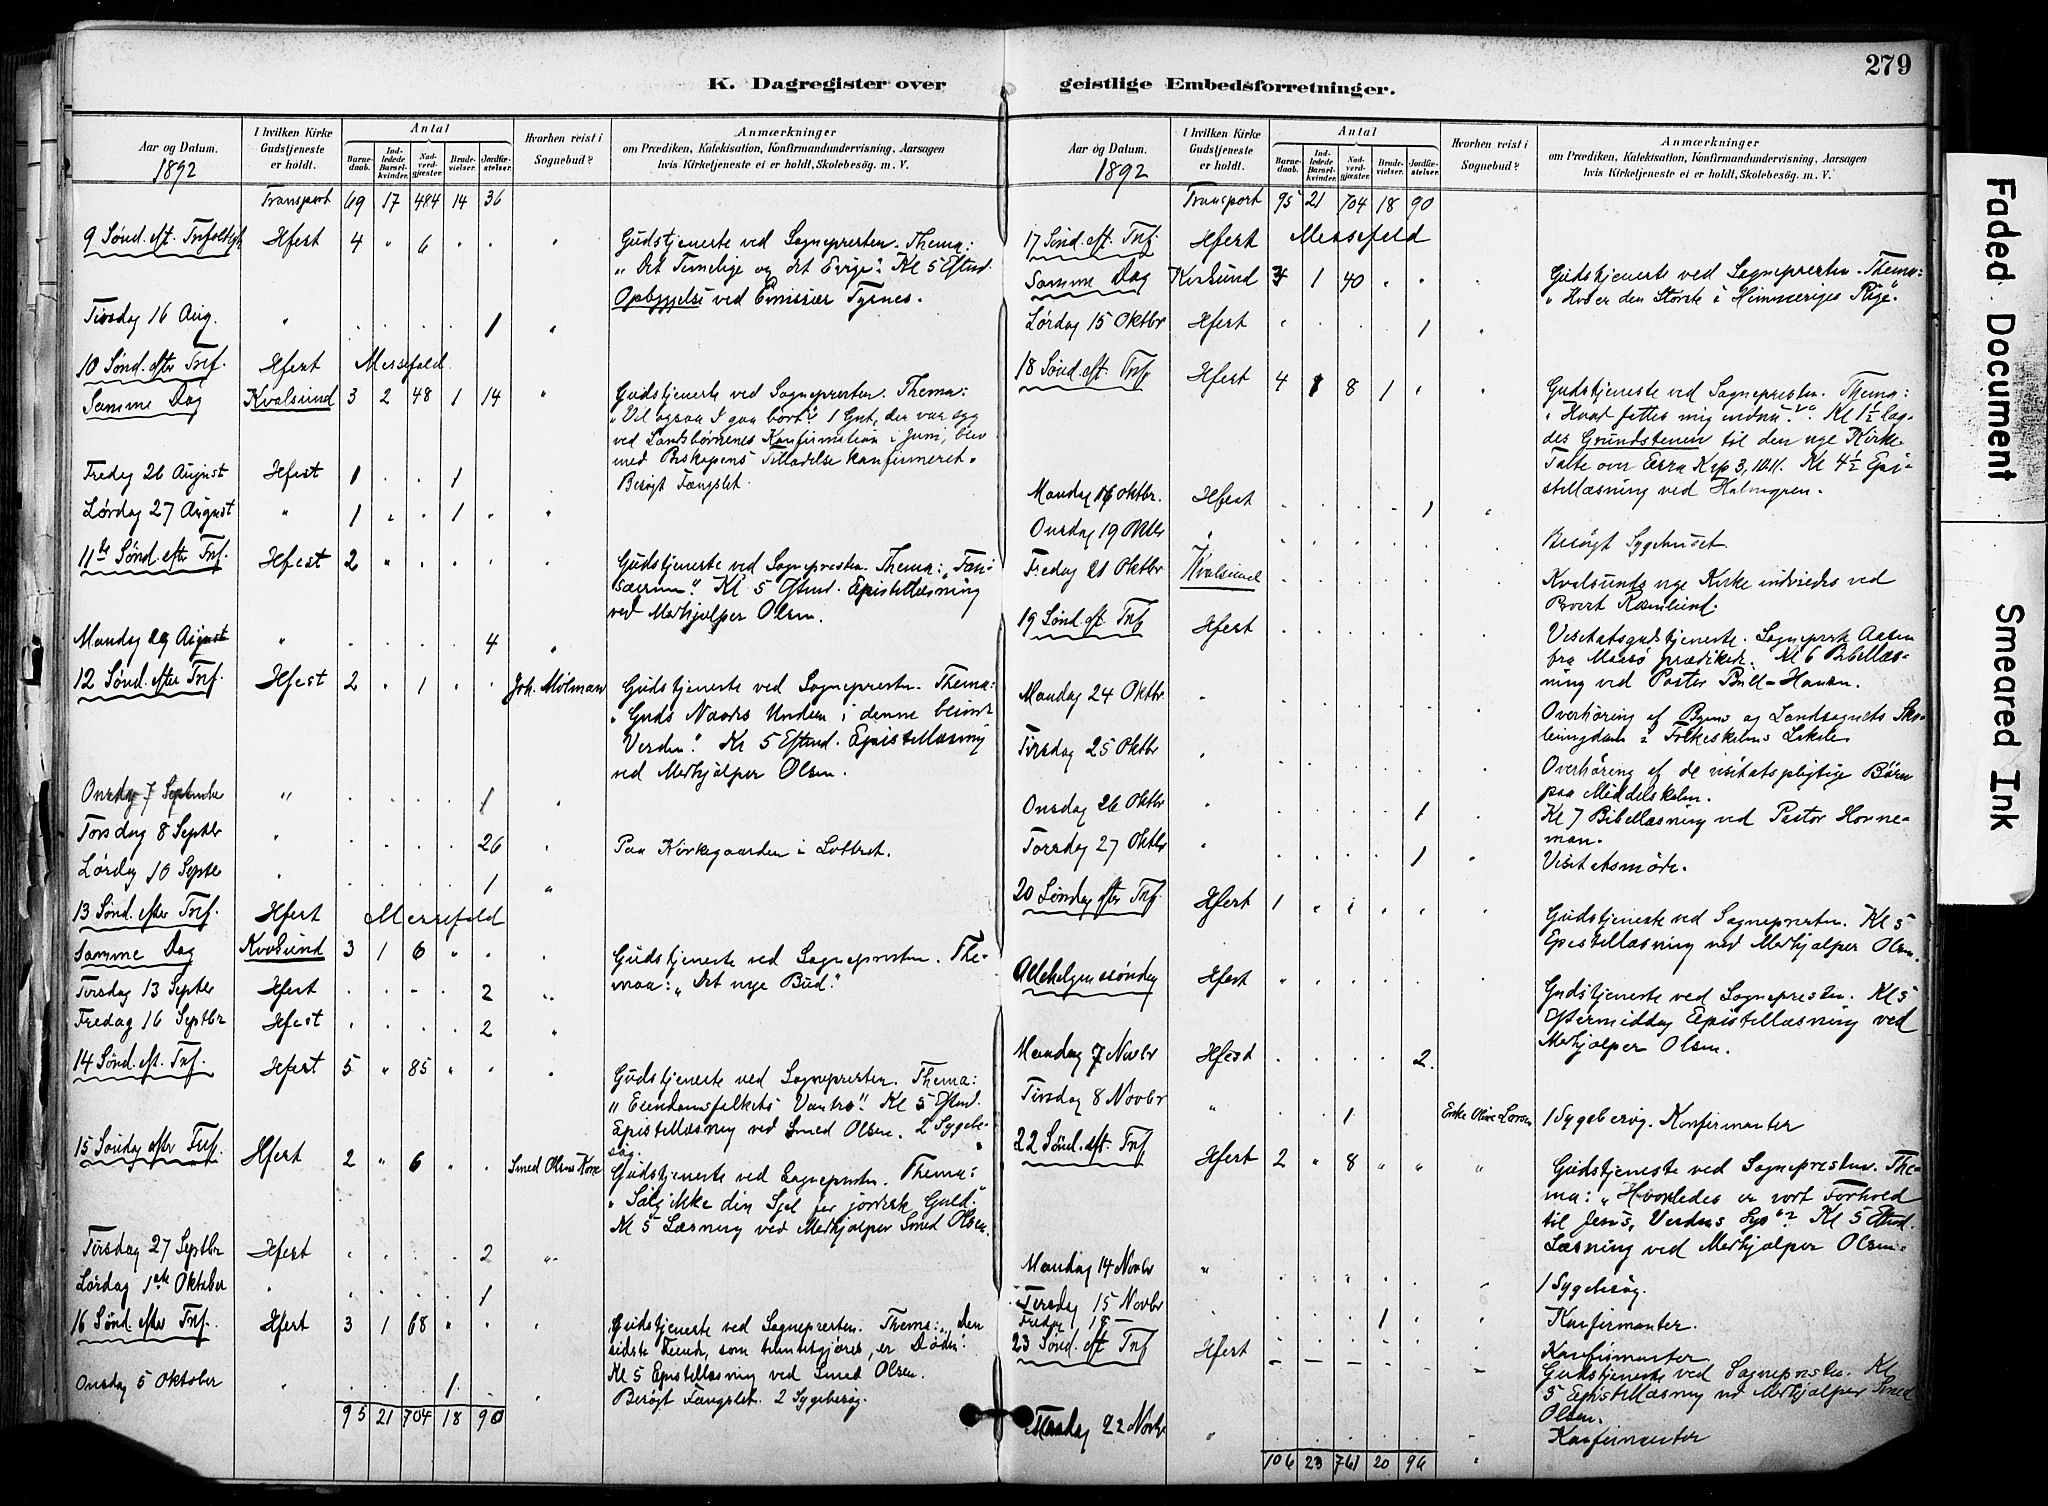 279
K. Dagregister over geistlige Embedsforretninger.
Aar og Datum.
1892
I hvilken Kirke
Gudstjeneste
er holdt.
Antal
Barne-
daab.
Ind-
ledede
Barsel-
kvinder.
Nad-
verd-
gjæster.
Brude-
vielser.
Jordfæ-
stelser.
Hvorhen reist i
Sognebud?
Anmærkninger
om Prædiken, Katekisation, Konfirmandundervisning, Aarsagen
hvis Kirketjeneste ei er holdt, Skolebesög. m. V.
Transport 69 17 484 14 36
9 Sønd. eft. Trefoldigh Hfest 4 " 6 . . " Gudstjeneste ved Sognepresten. Thema:
"Det Timelige og det Evige". Kl 5 Eftmd.
Opbyggelse ved Emissær Tysnes.
Tirsdag 16 Aug. " . . . . 1 "
10 Sønd. efter Tref. Hfest Messefald
Samme Dag Kvalsund 3 2 48 1 14 " Gudstjeneste ved Sognepresten. Thema:
"Vil ogsaa I gaa bort"? 1 Gut, der var syg
ved Landsbørnenes Konfirmation i Juni, blev
med Biskopens Tilladelse konfirmeret.
Besøgt Fængslet.
Fredag 26 August Hfest 1 . . 1 . .
Lørdag 27 August " 1 . . 1 . "
11te Sønd. efter Tref. Hfest 2 " . . . . Gudstjeneste ved Sognepresten. Thema: "Fari-
sæerne". Kl 5 Eftmd. Epistellæsning
ved Medhjælper Olsen.
Mandag 29 August " . . . . 4 "
12 Sønd. efter Tref. Hfest 2 . 1 . . Joh. Mølman Gudstjeneste ved Sognepresten. Thema:
"Guds Naades Undere i denne
Verden". Kl 5 Eftmd. Epistellæsning
ved Medhjælper Olsen.
Onsdag 7 September " . . . . 1 "
Torsdag 8 Septbr " . . . . 26 " Paa Kirkegaarden i
Lørdag 10 Septbr " . . . . 1 "
13 Sønd. efter Tref. Hfest Messefald
Samme Dag Kvalsund 3 1 6 " . . Gudstjeneste ved Sognepresten. The-
maa: "Det nye Bud".
Tirsdag 13 Septbr Hfest . . . . 2 "
Fredag 16 Septbr Hfest . . . . 2 "
14 Sønd. eft. Tref. Hfest 5 " 85 " . . Gudstjeneste ved Sognepresten. Thema:
"Eiendomsfolkets Vantro". Kl 5 Eftmd.
Epistellæsning ved Smed Olsen. 2 Sygebe-
søg.
15 Søndag efter Tref. Hfest 2 " 6 " . Smed Olsens Kone Gudstjeneste ved Sognepresten. Thema:
"Sælg ikke din Sjel for jordisk Guld."
Kl 5 Læsning ved Medhjælper Smed Olsen.
Tirsdag 27 Septbr Hfest . . . . 2 "
Lørdag 1ste Oktober " . . . . 1
16 Sønd. efter Tref. Hfest 3 1 68 " . " Gudstjeneste ved Sognepresten. Thema: "Den
sidste Fiende, som tilintetgjøres, er Døden".
Kl 5 Epistellæsning ved Smed Olsen.
Onsdag 5 Oktober " . . . 1 . . Besøgt Fængslet. 2 Sygebesøg.
95 21 704 18 90
Aar og Datum.
1892
I hvilken Kirke
Gudstjeneste
er holdt.
Antal
Barne-
daab.
Ind-
ledede
Barsel-
kvinder.
Nad-
verd-
gjæster.
Brude-
vielser.
Jordfæ-
stelser.
Hvorhen reist i
Sognebud?
Anmærkninger
om Prædiken, Katekisation, Konfirmandundervisning, Aarsagen
hvis Kirketjeneste ei er holdt, Skolebesög. m. V.
Transport 95 21 704 18 90
17 Sønd. eft. Tref Hfest Messefald
Samme Dag Kvalsund 3 1 40 . . . Gudstjeneste ved Sognepresten. Thema:
"Hvo er den Største i Himmeriges Rige".
Lørdag 15 Oktbr Hfest " . . . 1 "
18 Sønd. eft. Tref Hfest 4 1 8 1 " " Gudstjeneste ved Sognepresten. Thema:
"Hvad fattes mig endnu"? Kl 1½ lag-
des Grundstenen til den nye Kirke.
Talte over Esra Kap 3, 10.11. Kl 4½ Epi-
stellæsning ved Halmgren.
Mandag 17 Oktbr. Hfest . . . . 1 "
Onsdag 19 Oktbr " . . . . . . Besøgt Sygehuset.
Fredag 21 Oktbr Kvalsund . . . . . . Kvalsunds nye Kirke indviedes ved
Provst
19 Sønd. eft. Tref Hfest . . . . . . Visitatsgudstjeneste. Sogneprest Aasen
fra Maasø prædikede. Kl 6 Bibellæs-
ning ved Pastor Bull-Hansen.
Mandag 24 Oktbr " . . . . . . Overhøring af Byens og Landsognets
i Folkeskolens Lokale
Tirsdag 25 Oktbr " . . . . . . Overhøring af de visitatspligtige Børn
paa Middelskolen.
Onsdag 26 Oktbr " . . . . 1 . Kl 7 Bibellæsning ved Pastor Horne-
man.
Torsdag 27 Oktbr " . . . . 1 " Visitatsmøde.
20 Søndag efter Tref. Hfest 1 " " " " " Gudstjeneste ved Sognepresten. Kl 5
Epistellæsning ved Medhjælper Olsen.
Allehelgenssøndag Hfest " . . . . . Gudstjeneste ved Sognepresten. Kl 5
Eftermiddag Epistellæsning ved
Medhjælper Olsen.
Mandag 7 Novbr Hfest . . . . 2.
Tirsdag 8 Novbr " . . 1 . . Enke Olive Larsen 1 Sygebesøg. Konfirmanter
22 Sønd. eft. Tref Hfest 2 " 8 " " " Gudstjeneste ved Sognepresten. The-
ma: "Hvorledes er vort Forhold
til Jesus, Verdens Lys"? Kl 5 Eftmd.
Læsning ved Medhjælper Olsen.
Mandag 14 Novbr " . . . . . . 1 Sygebesøg.
Tirsdag 15 Novbr . . . . 1 . . Konfirmanter.
Fredag 18 — Konfirmanter
23 Sønd. eft Tref Hfest – – – – – – Gudstjeneste ved Sognepresten. Kl
5 Epistellæsning ved Medhjælper Smed
Olsen.
22 Novbr " . . . . . – Konfirmanter
106 23 761 20 96
Faded Document
Smeared Ink